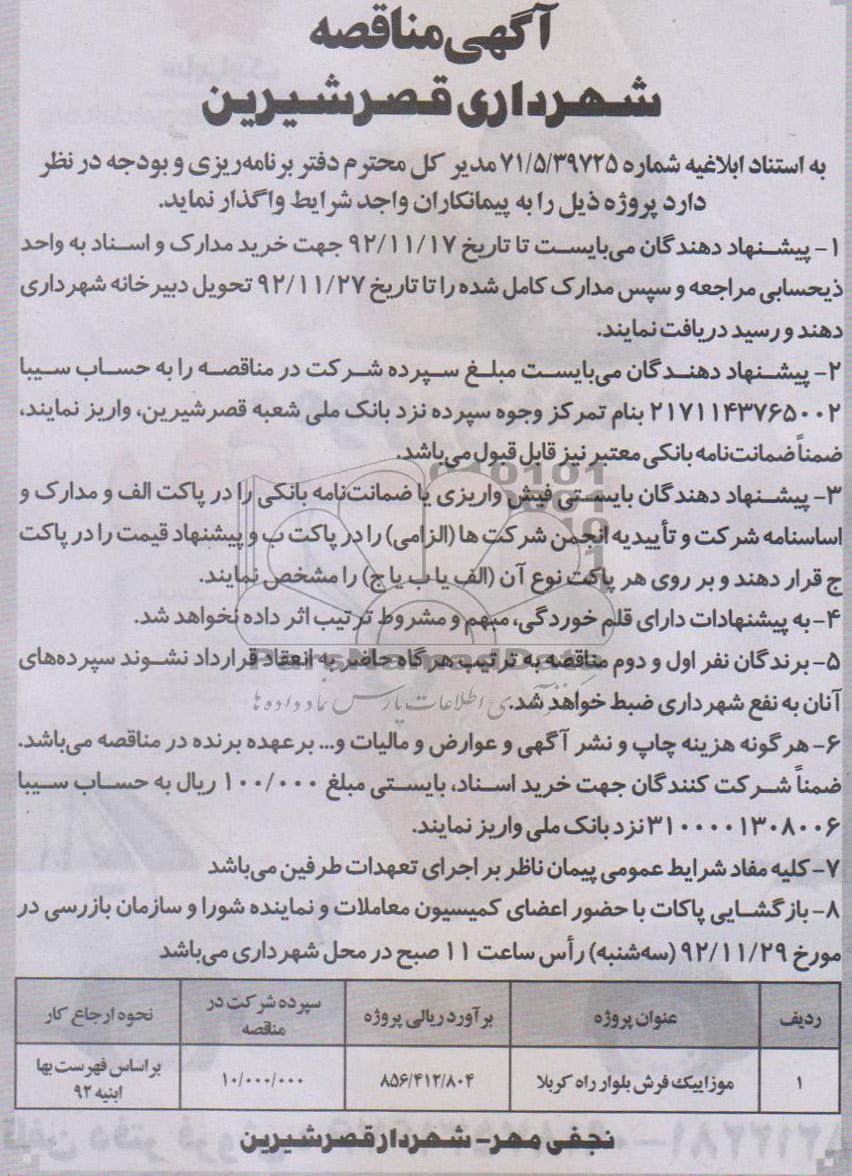 آگهی مناقصه
شهرداری قصرشیرین
به استناد ابلاغیه شماره ۷۱/۵/۳۹۷۲۵ مدیر کل محترم دفتر برنامه‌ریزی و بودجه در نظر
دارد پروژه ذیل را به پیمانکاران واجد شرایط واگذار نماید.
۱- پیشنهاد دهندگان می‌بایست تا تاریخ ۹۲/۱۱/۱۷ جهت خرید مدارک و اسناد به واحد
ذیحسابی مراجعه و سپس مدارک کامل شده را تا تاریخ ۹۲/۱۱/۲۷ تحویل دبیرخانه شهرداری
دهند و رسید دریافت نمایند.
۲- پیشنهاد دهندگان می‌بایست مبلغ سپرده شرکت در مناقصه را به حساب سیبا
۲۱۷۱۱۴۳۷۶۵۰۰۲ بنام تمرکز وجوه سپرده نزد بانک ملی شعبه قصرشیرین، واریز نمایند،
ضمناً ضمانت‌نامه بانکی معتبر نیز قابل قبول می‌باشد.
۳- پیشنهاد دهندگان بایستی فیش واریزی یا ضمانت‌نامه بانکی را در پاکت الف و مدارک و
اساسنامه شرکت و تأییدیه انجمن شرکت ها (الزامی) را در پاکت ب و پیشنهاد قیمت را در پاکت
ج قرار دهند و بر روی هر پاکت نوع آن (الف یا ب یا ج) را مشخص نمایند.
۴- به پیشنهادات دارای قلم خوردگی، مبهم و مشروط ترتیب اثر داده نخواهد شد.
۵- برندگان نفر اول و دوم مناقصه به ترتیب هرگاه حاضر به انعقاد قرارداد نشوند سپرده‌های
ParsNamadData
آنان به نفع شهرداری ضبط خواهد شد.
۶- هر گونه هزینه چاپ و نشر آگهی و عوارض و مالیات و... بر عهده برنده در مناقصه می‌باشد.
ضمناً شرکت کنندگان جهت خرید اسناد، بایستی مبلغ ۱۰۰/۰۰۰ ریال به حساب سیبا
۳۱۰۰۰۰۱۳۰۸۰۰۶ نزد بانک ملی واریز نمایند.
۷- کلیه مفاد شرایط عمومی پیمان ناظر بر اجرای تعهدات طرفین می‌باشد
۸- بازگشایی پاکات با حضور اعضای کمیسیون معاملات و نماینده شورا و سازمان بازرسی در
مورخ ۹۲/۱۱/۲۹ (سه‌شنبه) رأس ساعت ۱۱ صبح در محل شهرداری می‌باشد
ردیف عنوان پروژه برآورد ریالی پروژه سپرده شرکت در مناقصه نحوه ارجاع کار
۱ موزاییک فرش بلوار راه کربلا ۸۵۶/۴۱۲/۸۰۴ ۱۰/۰۰۰/۰۰۰ براساس فهرست بها ابنیه ۹۲
نجفی مهر- شهردار قصرشیرین